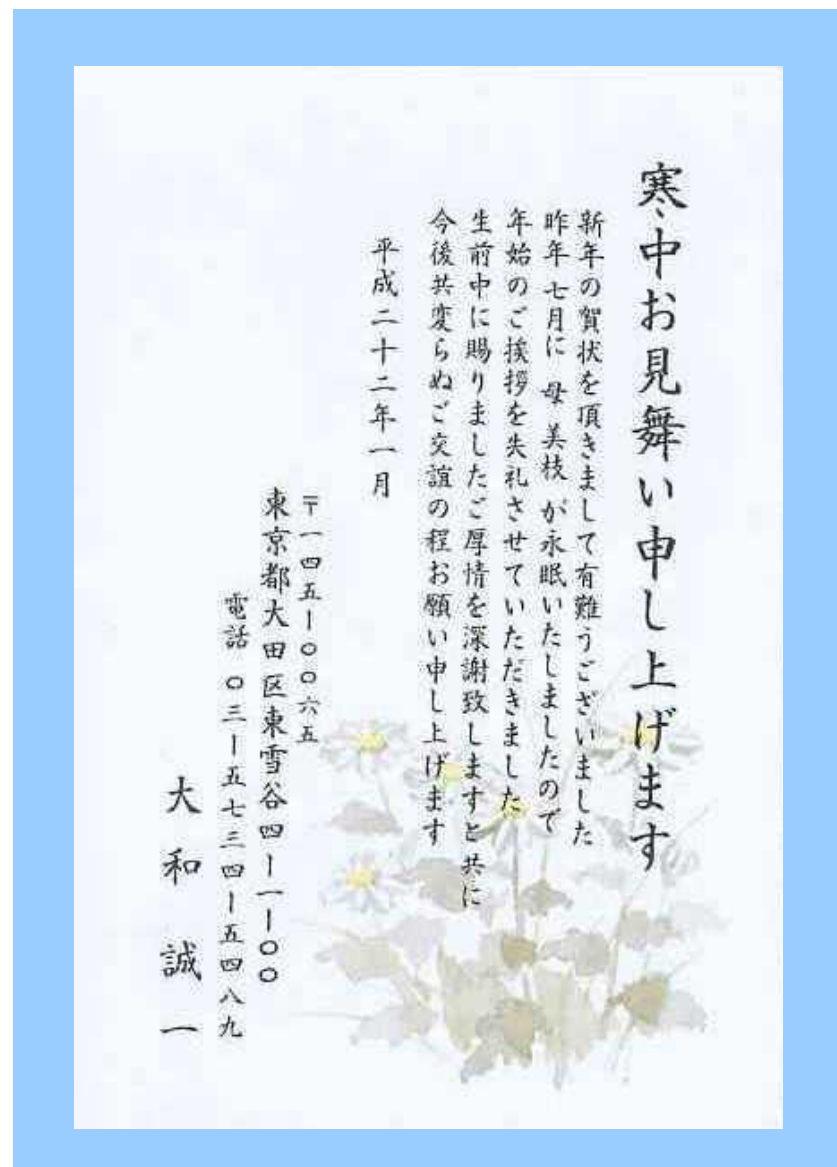 寒中お見舞い申し上げます
新年の賀状を頂きまして有難うございました
昨年 七月に 母 美枝 が永眠いたしましたので
年始のご挨拶を失礼させていただきました
生前中に賜りましたご厚情を深謝致しますと共に
今後共変らぬご交誼の程お願い申し上げます
平成二十二年一月
〒一四五ー〇〇六五
東京都大田区東雪谷四ー一ー〇〇
電話 〇三ー五七三四ー五四八九
大和誠一